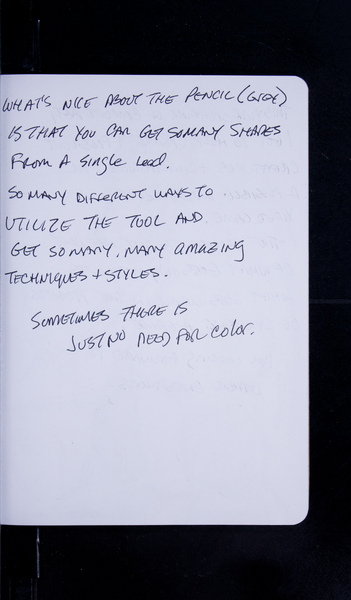 WHAT'S NICE ABOUT THE PENCIL (GREY)
IS THAT YOU CAN GET SO MANY SHADES
FROM A SINGLE LEAD.
SO MANY DIFFERENT WAYS TO
UTILIZE THE TOOL AND
GET SO MANY, MANY AMAZING
TECHNIQUES + STYLES.
SOMETIMES THERE IS
JUST NO NEED FOR COLOR.